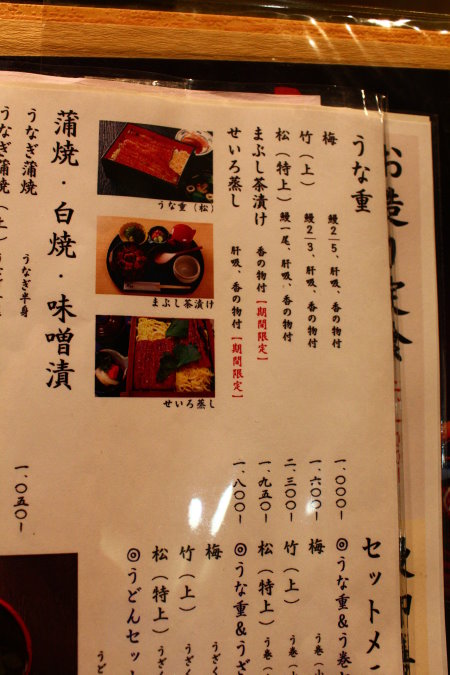 うな重
梅 鰻2/5、肝吸、香の物付 一、〇〇〇ー
竹(上) 鰻2/3、肝吸、香の物付 一、六〇〇ー
松(特上) 鰻一尾、肝吸、香の物付 二、三〇〇ー
まぶし茶漬け 香の物付【期間限定】 一、九五〇ー
せいろ蒸し 肝吸、香の物付【期間限定】 一、八〇〇ー
うな重(松)
まぶし茶漬け
せいろ蒸し
蒲焼・白焼・味噌漬
うなぎ蒲焼 うなぎ半身 一、〇五〇ー
うなぎ蒲焼(上)
セットメ
◎うな重&う巻
梅 う巻(小
竹(上) う巻(
松(特上) う巻(
◎うな重&うざ
梅 うざく
竹(上) うざく
松(特上) うざく
◎うどんセッ
うど